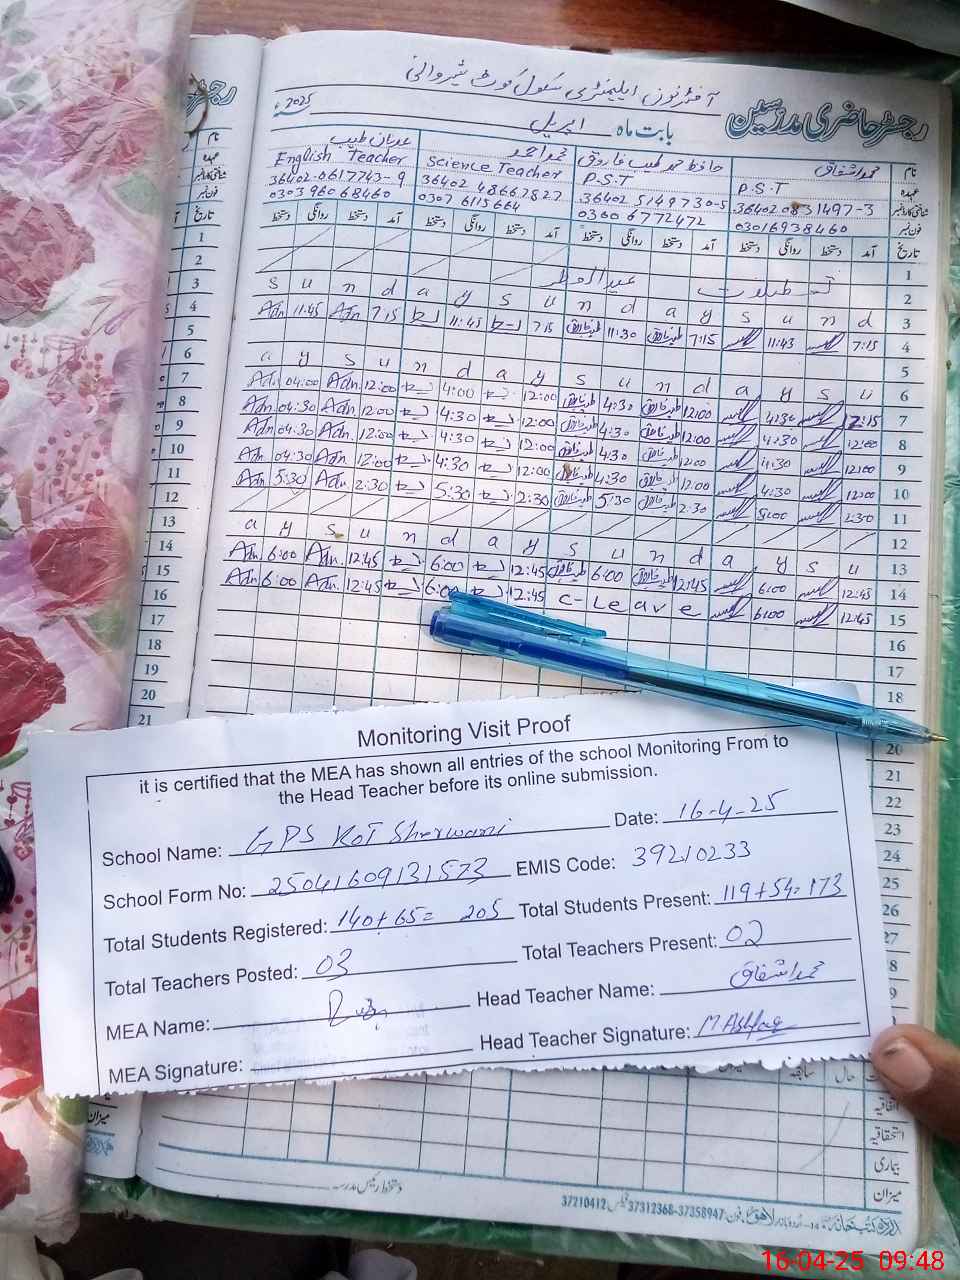 آفٹرنون ایلیمنٹری سکول کوٹ شیروانی
رجسٹر حاضری مدرسین
بابت ماہ اپریل 2025ء
نام محمد اشفاق حافظ محمد طیب فاروق محمد احمد عدنان طیب
عہدہ P.S.T P.S.T Science Teacher English Teacher
شناختی کارڈ نمبر 36402 0831497-3 36402 5149730-5 36402 48667827 36402-0617743-9
فون نمبر 03016938460 0300 6772472 0307 6115664 0303 960 68460
تاریخ آمد دستخط روانگی دستخط آمد دستخط روانگی دستخط آمد دستخط روانگی دستخط آمد دستخط روانگی دستخط تاریخ
1 1
2 2
3 S u n d a y S u n d a y S u n d 3
4 Adn 11:45 Adn 7:15 11:45 7:15 11:30 7:15 11:43 7:15 4
5 5
6 a y S u n d a y S u n d a y S u 6
7 Adn 04:00 Adn 12:00 4:00 12:00 4:30 12:00 4:30 12:15 7
8 Adn 04:30 Adn 12:00 4:30 12:00 4:30 12:00 4:30 12:00 8
9 Adn 04:30 Adn 12:00 4:30 12:00 4:30 12:00 4:30 12:00 9
10 Adn 04:30 Adn 12:00 4:30 12:00 4:30 12:00 4:30 12:00 10
11 Adn 5:30 Adn 2:30 5:30 2:30 5:30 2:30 2:30 11
12 12
13 a y S u n d a y S u n d a y S u 13
14 Adn 6:00 Adn 12:45 6:00 12:45 6:00 12:45 6:00 12:45 14
15 Adn 6:00 Adn 12:45 6:00 12:45 C-Leave 6:00 12:45 15
16 16
17 17
18 18
19
20 20
21 21
22
23
24
25
26
27
Monitoring Visit Proof
it is certified that the MEA has shown all entries of the school Monitoring From to
the Head Teacher before its online submission.
School Name: GPS Kot Sherwani Date: 16-4-25
School Form No: 25041609131573 EMIS Code: 39210233
Total Students Registered: 140+65= 205 Total Students Present: 119+54=173
Total Teachers Posted: 03 Total Teachers Present: 02
MEA Name: Head Teacher Name: محمد اشفاق
MEA Signature: Head Teacher Signature: M Ashfaq
حال سابقہ
اتفاقیہ
استحقاقیہ
بیماری
میزان
دستخط رئیس مدرسہ
اردو بازار لاہور فون: 37358947-37312368 فیکس 37210412
16-04-25 09:48